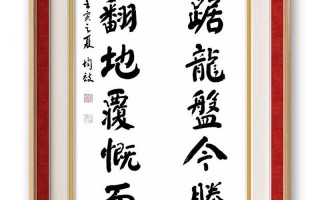 踞龍盤今勝
翻地覆慨而
寅之夏